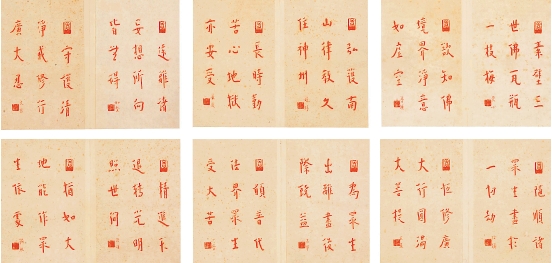 素壁三
世佛瓦瓶
一枝梅
欲知佛
境界淨意
如虛空
弘護南
山律教久
住神州
長時勤
苦心地獄
亦安受
遠離諸
妄想所向
皆無碍
守護清
淨戒修行
廣大慈
隨順諸
眾生盡於
一切劫
恒修廣
大行圓滿
大菩提
為眾生
出離盡後
際饒益
願普代
法界眾生
受大苦
精進不
退轉光明
照世間
猶如大
地能作眾
生依處